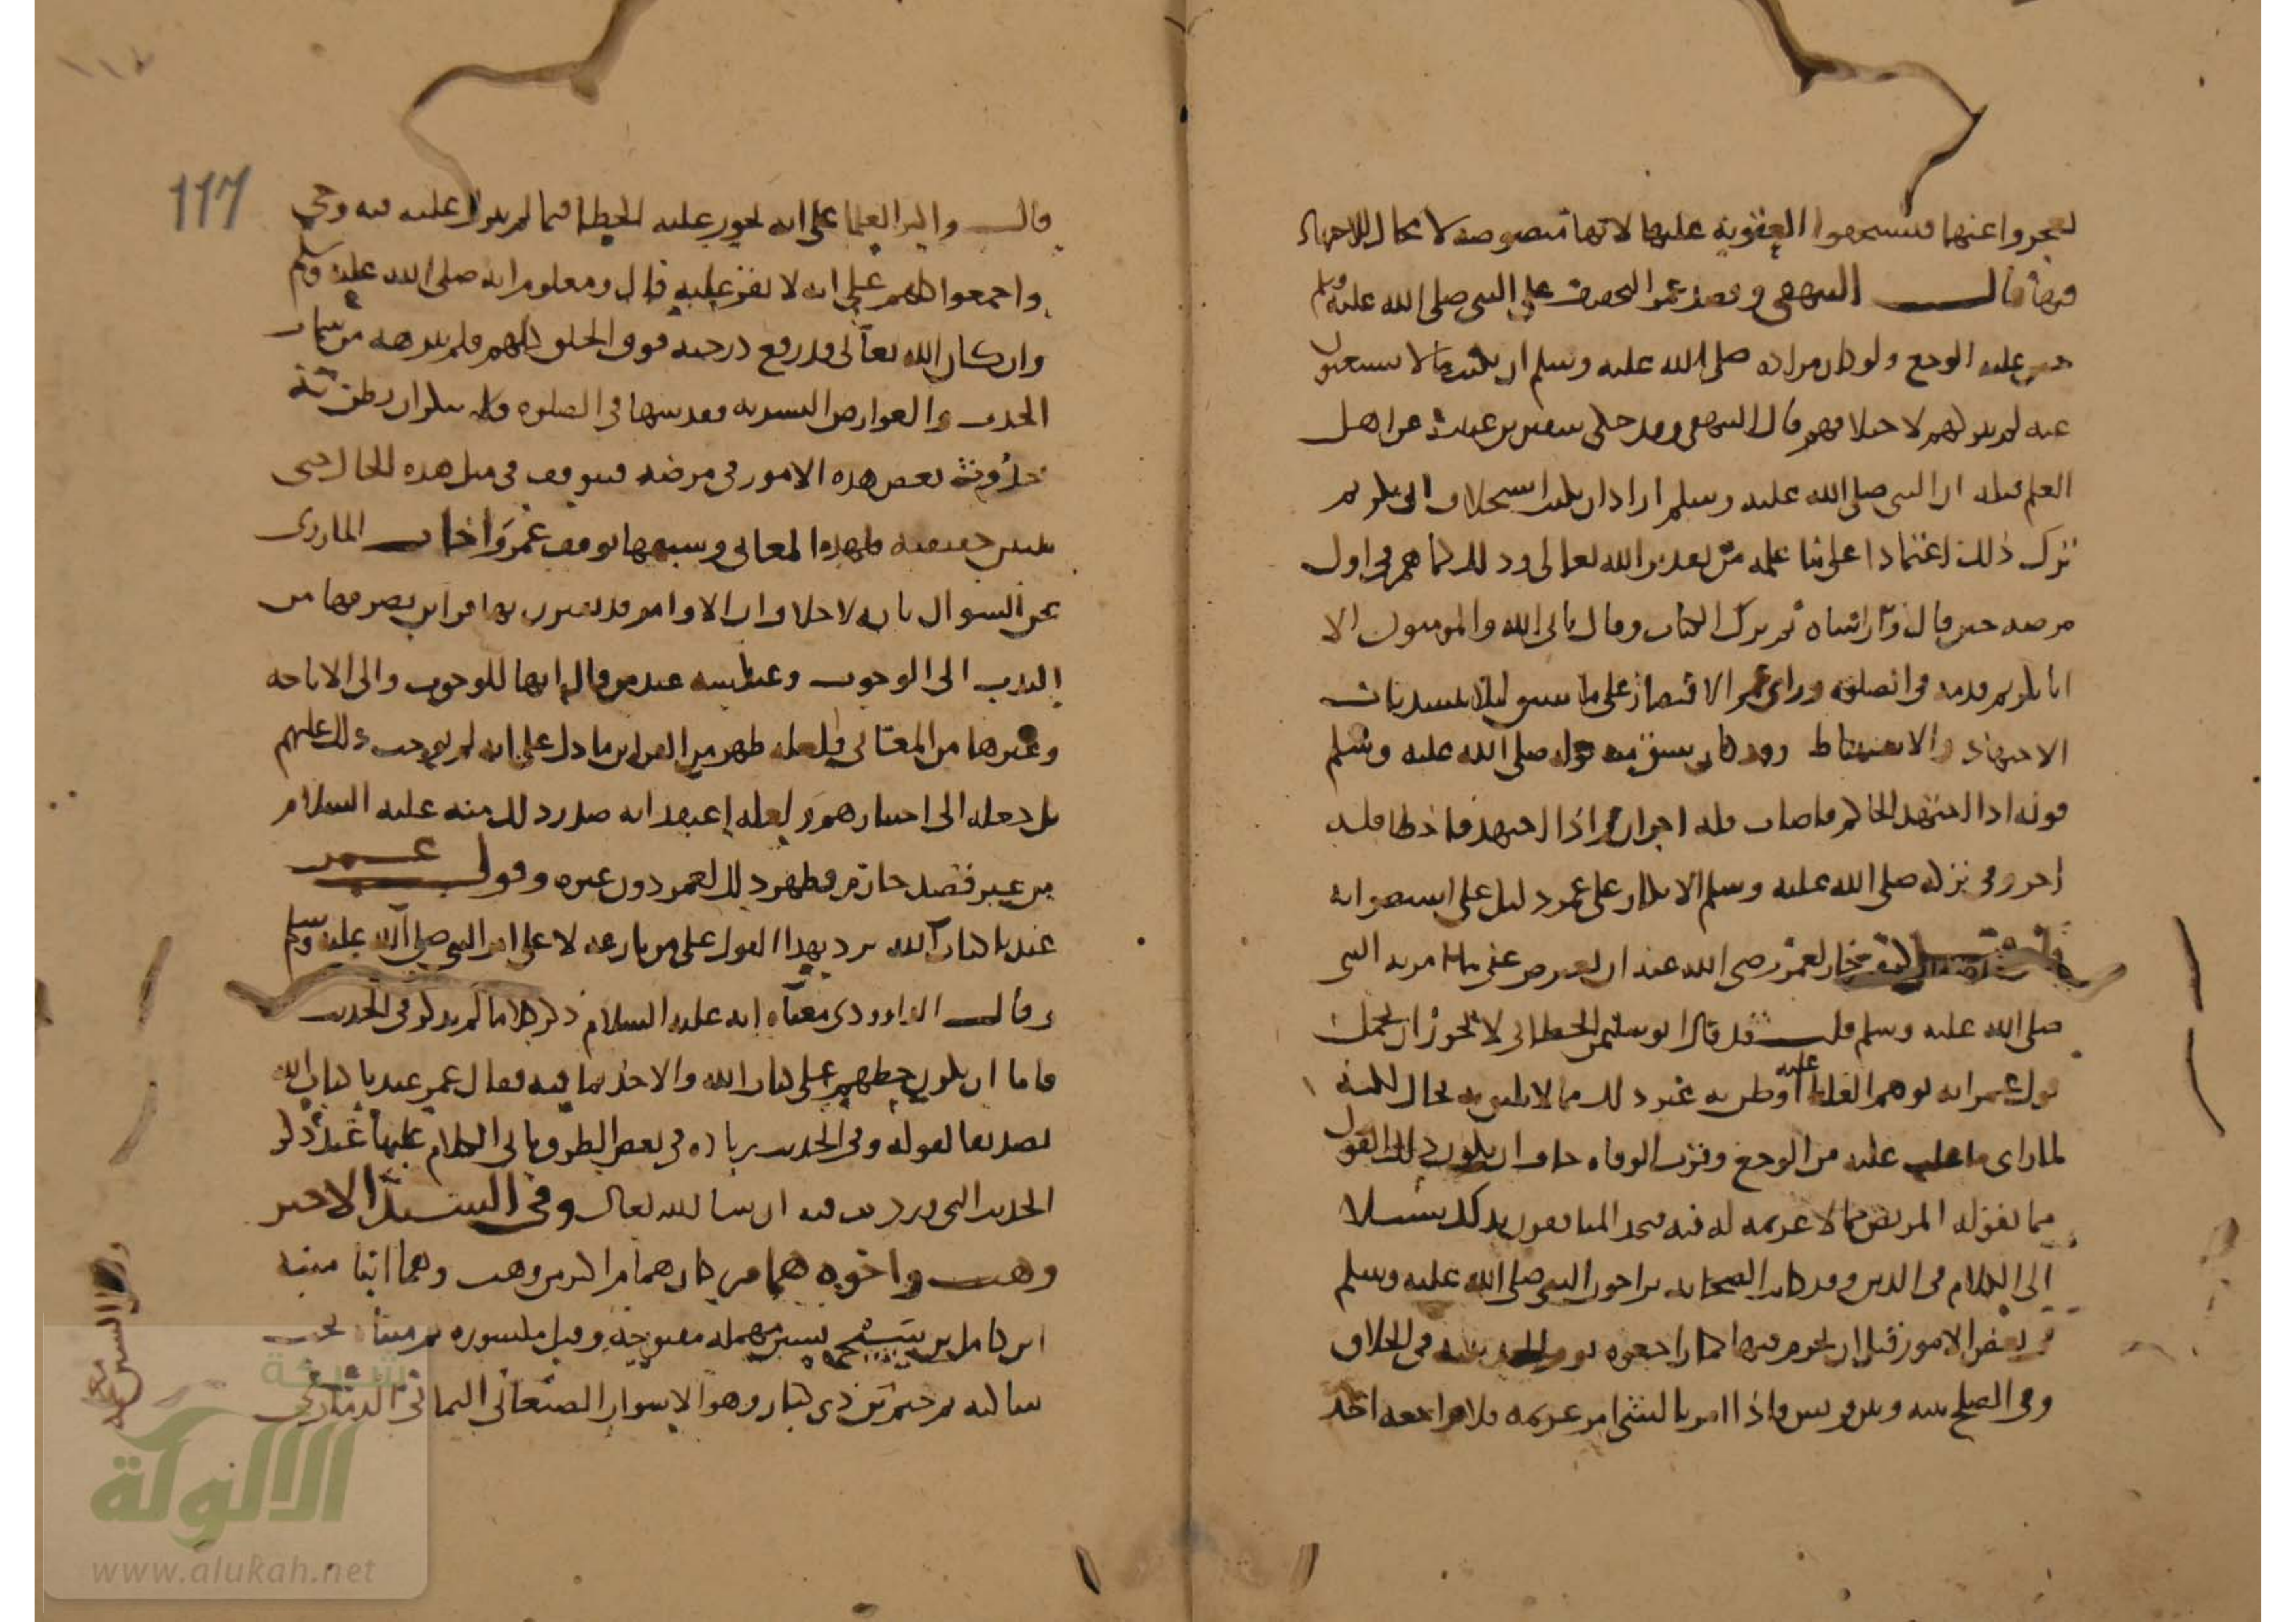 ليعجزوا عنها فيستحقوا العقوبة عليها لانها منصوصة لا مجال للاجتهاد
فيها قال البيهقي وقصد عمر التخفيف على النبي صلى الله عليه وسلم
حين عليه الوجع ولو كان مراده صلى الله عليه وسلم ان يكتب ما لا يستغنون
عنه لم يتركهم لاختلافهم قال البيهقي وقد حكى سفين بن عيينة عن اهل
العلم قبله ان النبي صلى الله عليه وسلم اراد ان يكتب استخلاف ابي بكر ثم
ترك ذلك اعتمادا على ما علمه من تقدير الله تعالى وذلك كما هم في اول
مرضه حين قال وارأساه ثم ترك الكتاب وقال يابى الله والمومنون الا
ابا بكر ثم قدمه في الصلوة ورأى عمر الاقتصار على ما سبق ليلا ينسد باب
الاجتهاد والاستنباط وقد كان سبق منه قوله صلى الله عليه وسلم
قوله اذا اجتهد الحاكم فاصاب فله اجران واذا اجتهد فاخطا فله
اجر وفي تركه صلى الله عليه وسلم الانكار على عمر دليل على استصوابه
كيف جاز لعمر رضي الله عنه ان يعترض على ما امر به النبي
صلى الله عليه وسلم قلت قد قال ابو سليمن الخطابي لا يجوز ان يحمل
قول عمر انه توهم الغلط عليه او ظن به غير ذلك مما لا يليق به بحال لكنه
لما راى ما غلب عليه من الوجع وقرب الوفاه خاف ان يكون ذلك القول
مما يقوله المريض مما لا عزيمه له فيه فيجد المنافقون بذلك سبيلا
الى الكلام في الدين وقد كان الصحابه يراجعون النبي صلى الله عليه وسلم
في بعض الامور قبل ان يجزم فيها كما راجعوه يوم الحديبيه في الحلاق
وفي الصلح بينه وبين قريش فاذا امر بالشي امر عزيمه فلا يراجعه احد
117
قال واكثر العلما على انه يجوز عليه الخطا فيما لم ينزل عليه فيه وحي
واجمعوا كلهم على انه لا يقر عليه قال ومعلوم انه صلى الله عليه وسلم
وان كان الله تعالى قد رفع درجته فوق الخلق كلهم فلم ينزهه من سمات
الحدث والعوارض البشريه وقد سها في الصلوه فلا ينكر ان يظن به
حدوث بعض هذه الامور في مرضه فيتوقف في مثل هذه الحال حتى
يتبين حقيقته فلهذه المعاني وشبهها توقف عمر واجاب المازري
عن السوال بانه لا خلاف ان الاوامر قد يقترن بها قراين يصرفها من
الندب الى الوجوب وعكسه عند من قال انها للوجوب والى الاباحه
وغيرها من المعاني فلعله ظهر من القراين ما دل على انه لم يوجب ذلك عليهم
بل جعله الى اختيارهم ولعله اعتقد انه صدر ذلك منه عليه السلام
من غير قصد جازم فظهر ذلك لعمر دون غيره وقول عمر
عندنا كتاب الله يرد بهذا القول على من نازعه لا على امر النبي صلى الله عليه وسلم
وقال الداوودي معناه انه عليه السلام ذكر كلاما لم يذكر في الحديث
فاما ان يكون حظهم على كتاب الله والاخذ بما فيه فقال عمر عندنا كتاب الله
تصديقا لقوله وفي الحديث زياده في بعض الطرق ياتي الكلام عليها عند ذكر
الحديث التي وردت فيه ان شا الله تعالى وفي السند الاخير
وهب واخوه همام كان همام اكبر من وهب وهما ابنا منبه
ابن كامل بن سيج بسين مهمله مفتوحه وقيل مكسوره ثم مثناه تحت
ساكنه ثم جيم بن ذي كبار وهو الاسوار الصنعاني اليماني الذماري
شبكة
الألوكة
www.alukah.net